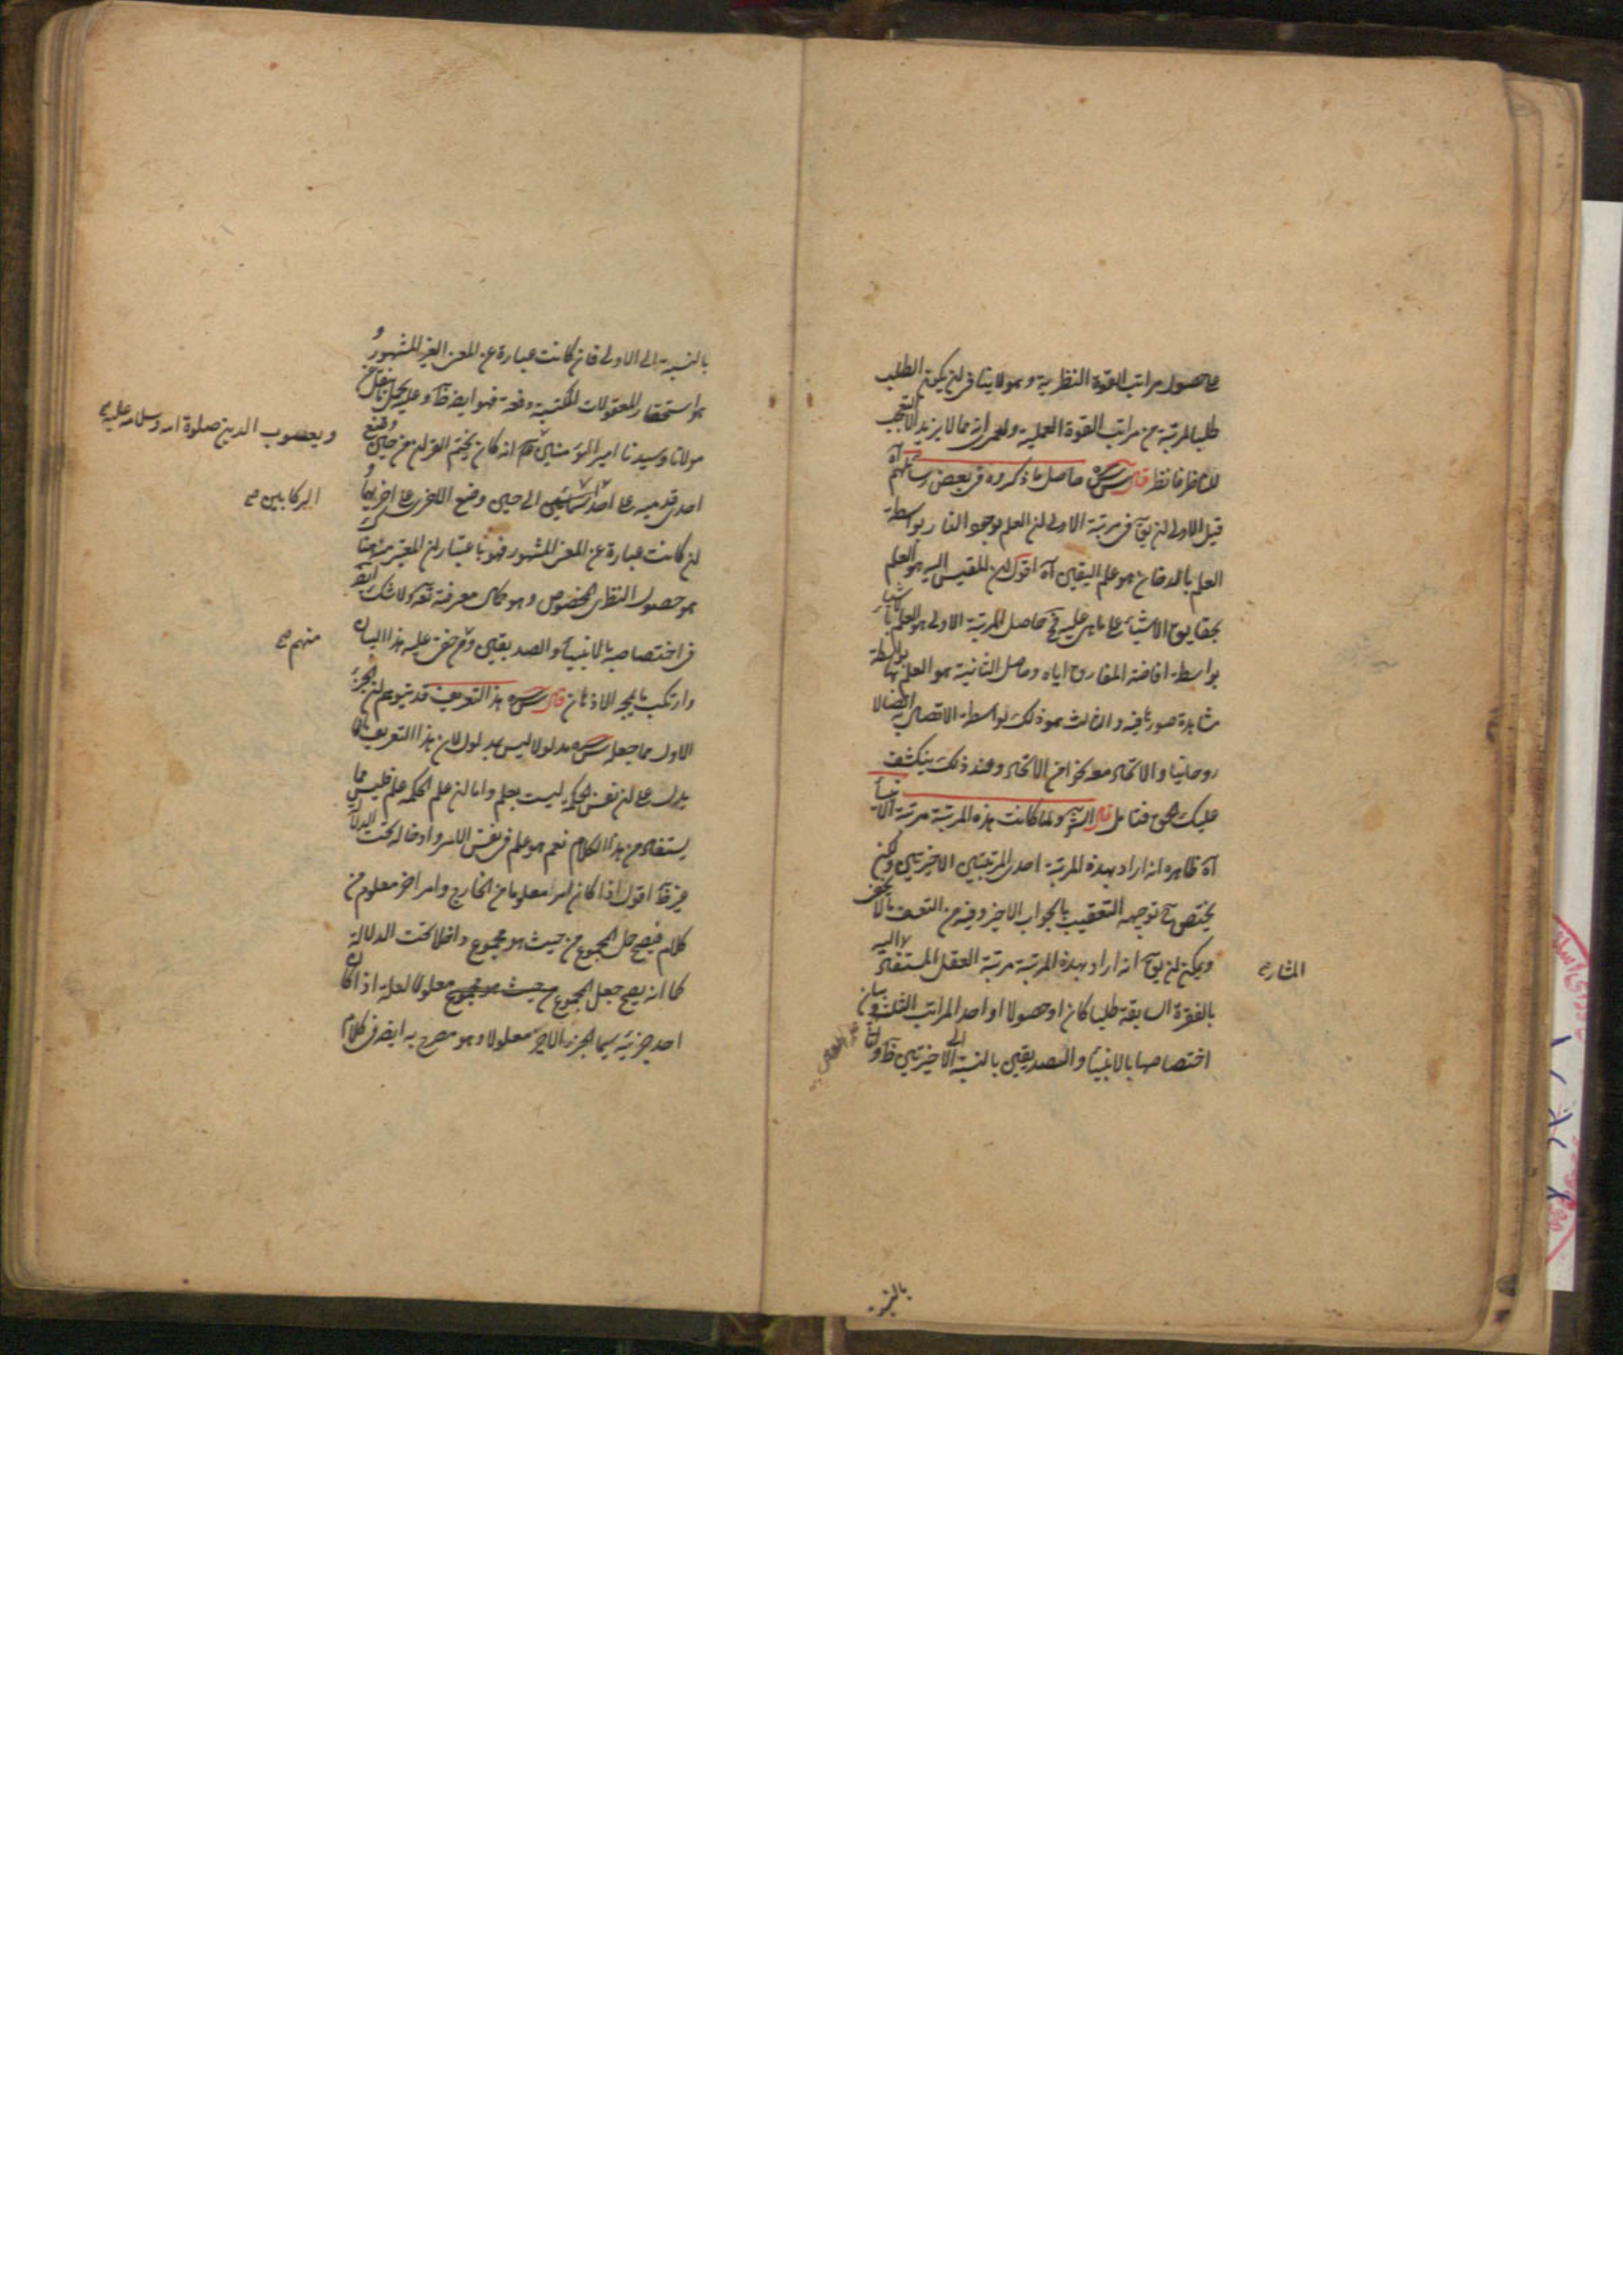 على حصول مراتب القوة النظرية وهو لا ينافى ان يكون الطلب
طلبا لمرتبة من مراتب القوة العملية ولعمرى انه مما لا يزيد الا التعجب
للناظر فانظر قال س سره حاصل ما ذكروه فى بعض رسائلهم آه
قيل الاولى ان يق فى مرتبة الاولى ان العلم بوجود النار بواسطة
العلم بالدخان هو علم اليقين آه اقول ان المقيس اليه هو العلم
بحقايق الاشياء على ما هى عليه فح حاصل المرتبة الاولى هو العلم بالاشياء
بواسطة افاضة المفارق اياه وحاصل الثانية هو العلم بها بواسطة
مشاهدة صورها فيه والثالث هو ذلك بواسطة الاتصال به اتصالا
روحانيا والاتحاد معه نحوا من الاتحاد وعند ذلك ينكشف
عليك فتامل قال الشه ولما كانت هذه المرتبة مرتبة الانبياء
آه ظاهره انه اراد بهذه المرتبة احدى المرتبتين الاخيرتين ولكن
يختص ح توجيه التعقيب بالجواب الاخير وفيه من التعسف ما لا يخفى
ويمكن ان يق انه اراد بهذه المرتبة مرتبة العقل المستفاد
المشار صح
اليه
بالفقرة السابقة طلبا كان او حصولا او احد المراتب الثلث وبيان
اختصاصها بالانبياء والصديقين بالنسبة الى الاخيرتين ظ واما
بالنسبة
بالنسبة الى الاولى فان كانت عبارة عن المعنى الغير المشهور و
هو استحضار المعقولات المكتسبة دفعة فهو ايض ظ وعليه يحمل ما نقل عن
مولانا وسيدنا امير المؤمنين انه كان يختم القران من حين وضع
ويعسوب الدين صلوة الله وسلامه عليه صح
احدى قدميه على احد الى حين وضع الاخرى على اخريهما و
الركابين صح
ان كانت عبارة عن المعنى المشهور فهو باعتبار ان المعتبر
هو حصول النظرى المخصوص وهو كمال معرفة تعه ولا شك ايض
فى اختصاصه بالانبياء والصديقين ومن خفى عليه هذا البيان
منهم صح
وارتكب ما يمجه الاذهان قال س سره هذا التعريف قد يتوهم ان الجزء
الاول مما جعله س سره مدلولا ليس بمدلول لان هذا التعريف انما
يدل على ان نفس الحكمة ليست بعلم واما ان علم الحكمة علم فليس مما
يستفاد من هذا الكلام نعم هو علم فى نفس الامر وادخاله تحت الدلالة
غير ظ اقول اذا كان امرا معلوما من الخارج وامر اخر معلوم من
كلام فيصح جعل المجموع من حيث هو مجموع داخلا تحت الدلالة
كما انه يصح جعل المجموع من حيث هو مجموع معلولا لعلة اذا كان
احد جزئيه سيما الجزء الاخير معلولا وهو مصرح به ايض فى كلام